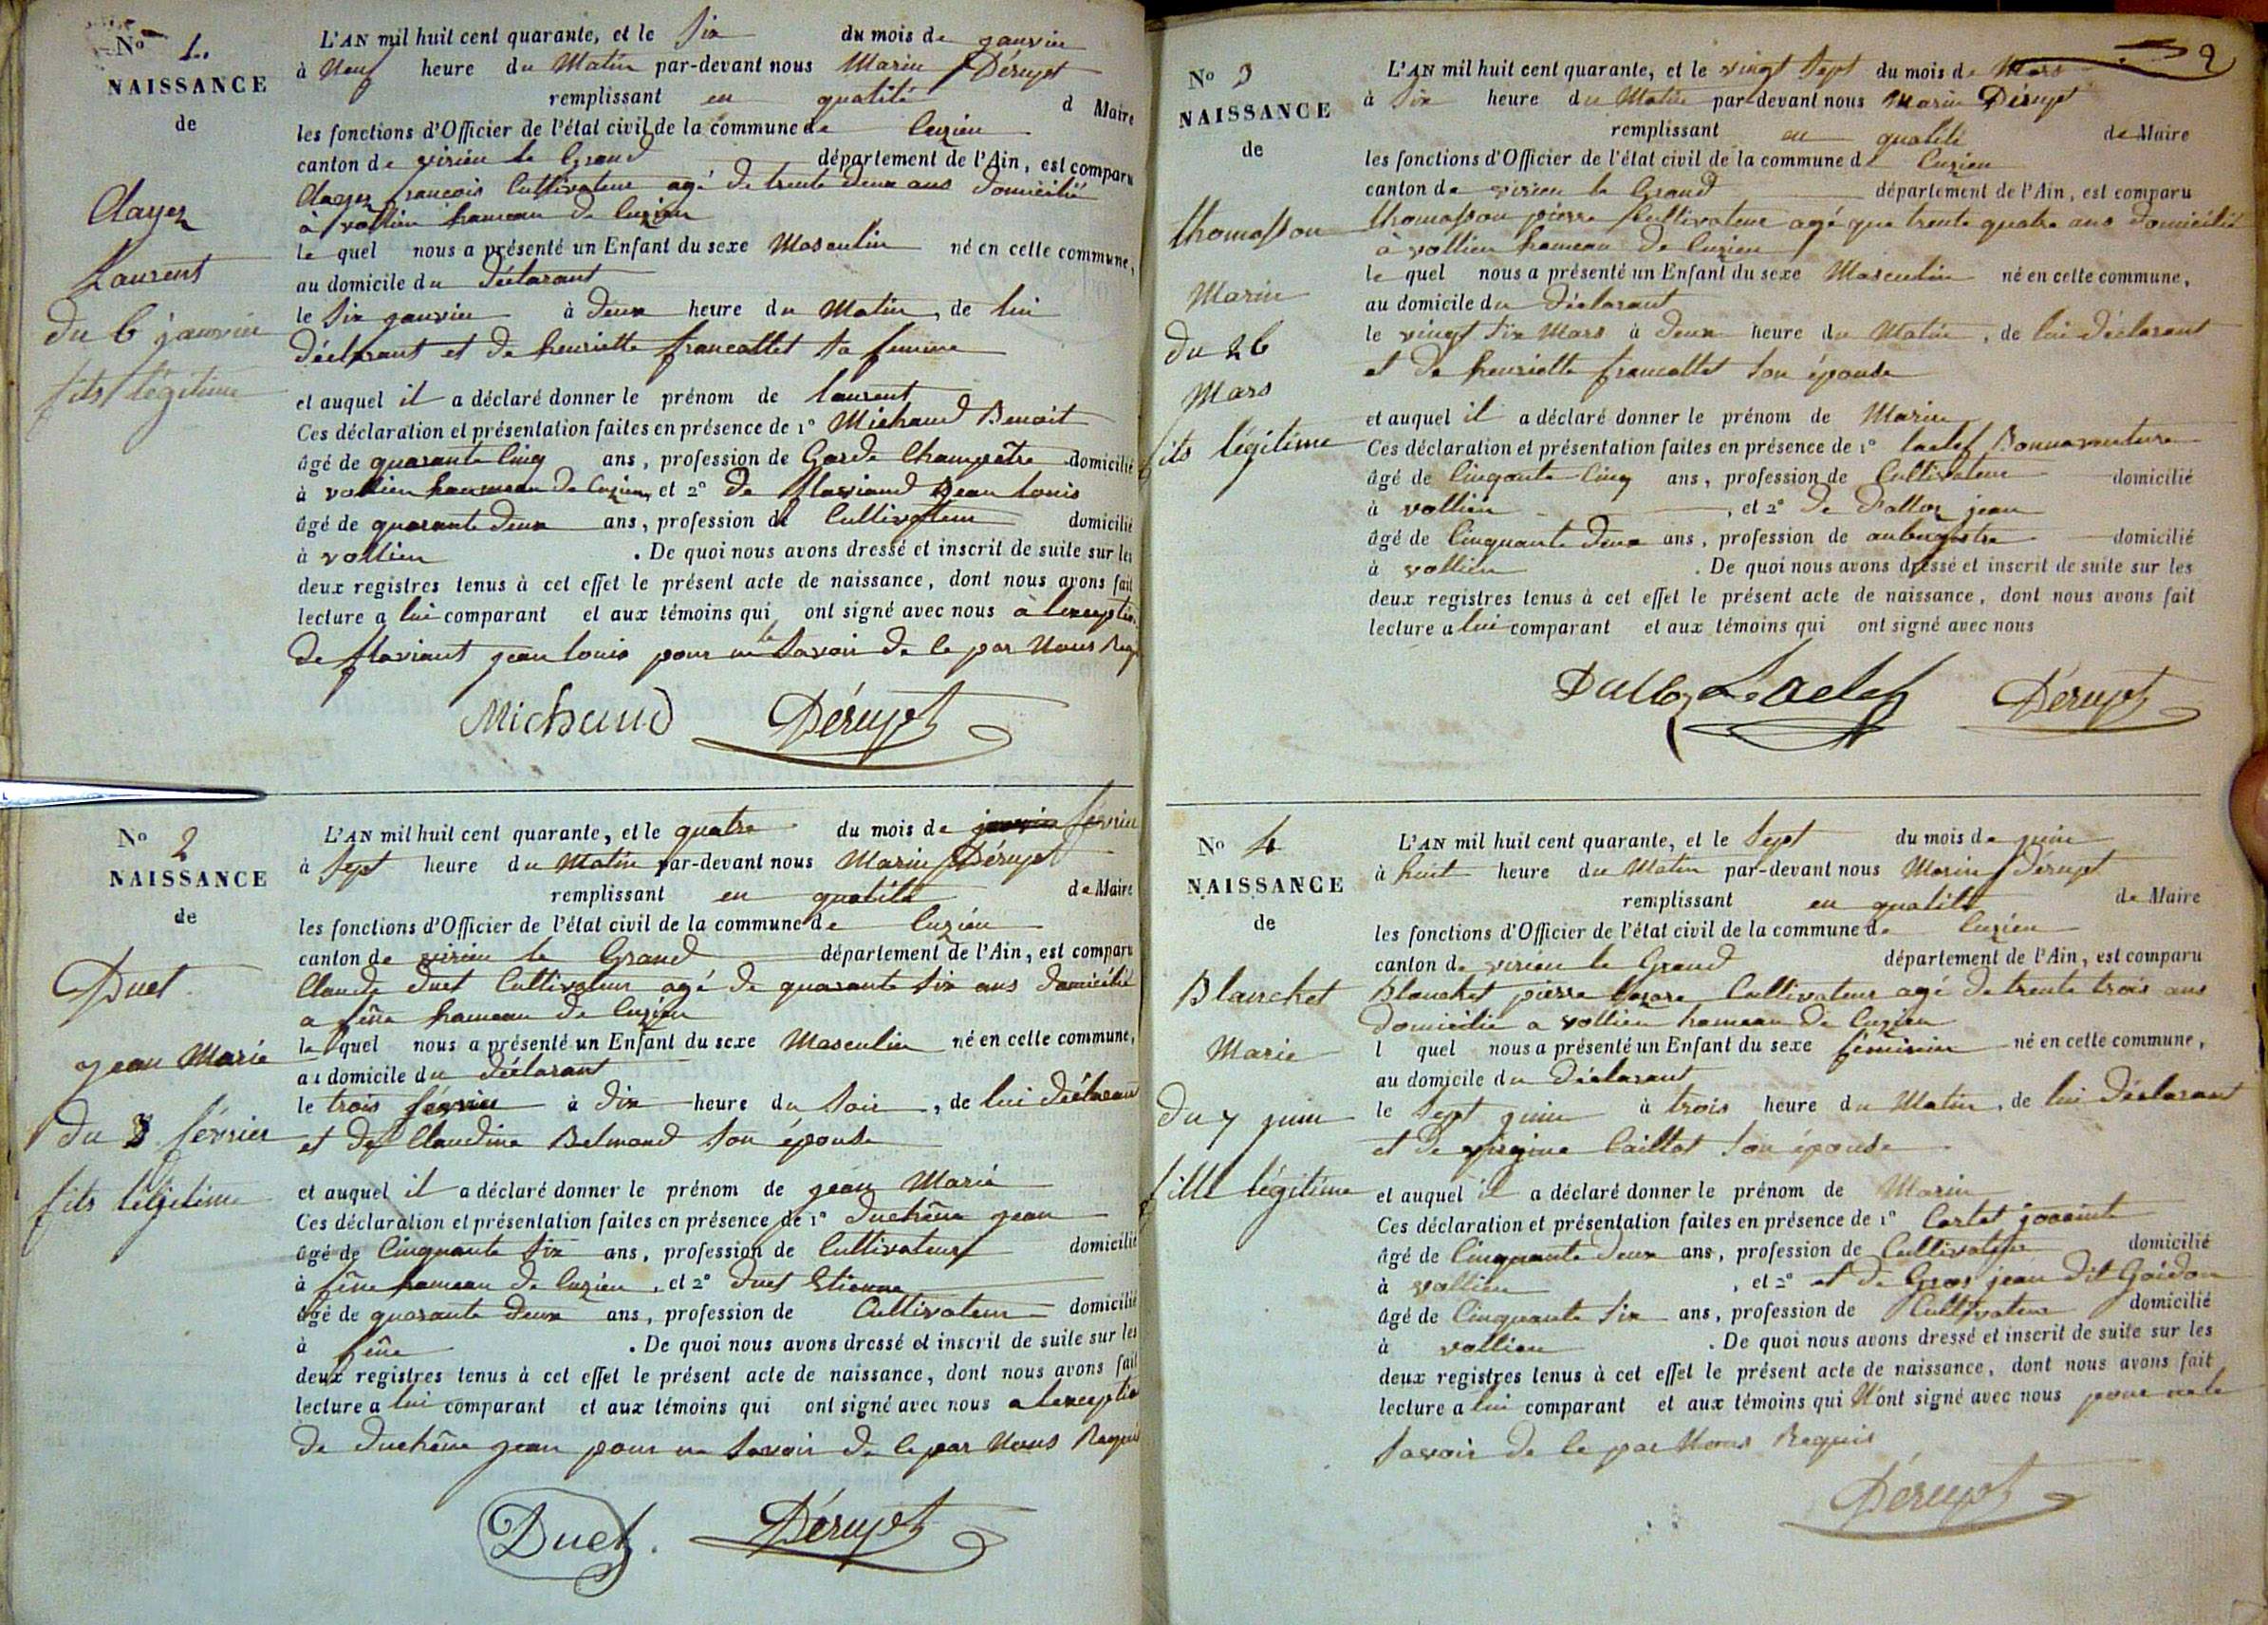 No 1.
NAISSANCE
de
Clayez
Laurent
du 6 janvier
fils légitime
L'AN mil huit cent quarante, et le six du mois de janvier
à neuf heure du Matin par-devant nous Marin Dérupt
remplissant en qualité d Maire
les fonctions d'Officier de l'état civil de la commune de Cuzieu
canton de virieu le Grand département de l'Ain, est comparu
Clayez francois Cultivateur agé de trente deux ans domicilié
à vollien hameau de Cuzieu
le quel nous a présenté un Enfant du sexe Masculin né en cette commune,
au domicile du déclarant
le six janvier à deux heure du Matin, de lui
déclarant et de henriette francallet sa femme
et auquel il a déclaré donner le prénom de laurent
Ces déclaration et présentation faites en présence de 1° Michaud Benoit
âgé de quarante Cinq ans, profession de Garde Champêtre domicilié
à vollien hammeau de Cuzieu, et 2° de flaviand Jean louis
âgé de quarante deux ans, profession de Cultivateur domicilié
à vollien . De quoi nous avons dressé et inscrit de suite sur les
deux registres tenus à cet effet le présent acte de naissance, dont nous avons fait
lecture a lui comparant et aux témoins qui ont signé avec nous à lexception
de flaviant jean louis pour ne le savoir de ce par Nous Requ
Michaud Dérupt
No 2
NAISSANCE
de
Duet
jean Marie
du 3 février
fils légitime
L'AN mil huit cent quarante, et le quatre du mois de janvier février
à sept heure du Matin par-devant nous Marin Dérupt
remplissant en qualité de Maire
les fonctions d'Officier de l'état civil de la commune de Cuzieu
canton de virieu le Grand département de l'Ain, est comparu
Claude duet Cultivateur agé de quarante six ans domicilié
a fêne hameau de Cuzieu
le quel nous a présenté un Enfant du sexe Masculin né en cette commune,
au domicile du déclarant
le trois février à dix heure du soir, de lui déclarant
et de Claudine Belmond son épouse
et auquel il a déclaré donner le prénom de jean Marie
Ces déclaration et présentation faites en présence de 1° duchêne jean
âgé de Cinquante six ans, profession de Cultivateur domicilié
à fêne hameau de Cuzieu, et 2° duet Etienne
âgé de quarante deux ans, profession de Cultivateur domicilié
à fêne . De quoi nous avons dressé et inscrit de suite sur les
deux registres tenus à cet effet le présent acte de naissance, dont nous avons fait
lecture a lui comparant et aux témoins qui ont signé avec nous a lexception
de duchêne jean pour ne savoir de ce par Nous Requis
Duet. Dérupt
2
No 3
NAISSANCE
de
thomasson
Marin
du 26
Mars
fils légitime
L'AN mil huit cent quarante, et le vingt sept du mois de Mars
à six heure du Matin par-devant nous Marin Dérupt
remplissant en qualité de Maire
les fonctions d'Officier de l'état civil de la commune de Cuzieu
canton de virieu le Grand département de l'Ain, est comparu
thomasson pierre Cultivateur agé que trente quatre ans domicilié
à vollien hameau de Cuzieu
le quel nous a présenté un Enfant du sexe Masculin né en cette commune,
au domicile du déclarant
le vingt six Mars à deux heure du Matin, de lui déclarant
et de henriette francallet son épouse
et auquel il a déclaré donner le prénom de Marin
Ces déclaration et présentation faites en présence de 1° laclef Bonnaventure
âgé de Cinqante Cinq ans, profession de Cultivateur domicilié
à vollien , et 2° de dalloz jean
âgé de Cinquante deux ans, profession de aubergiste domicilié
à vollien . De quoi nous avons dressé et inscrit de suite sur les
deux registres tenus à cet effet le présent acte de naissance, dont nous avons fait
lecture a lui comparant et aux témoins qui ont signé avec nous
Dalloz Laclef Dérupt
No 4
NAISSANCE
de
Blanchet
Marie
du 7 juin
fille légitime
L'AN mil huit cent quarante, et le sept du mois de juin
à huit heure du Matin par-devant nous Marin Dérupt
remplissant en qualité de Maire
les fonctions d'Officier de l'état civil de la commune de Cuzieu
canton de virieu le Grand département de l'Ain, est comparu
Blanchet pierre lazare Cultivateur agé de trente trois ans
domicilié a vollien hameau de Cuzieu
l quel nous a présenté un Enfant du sexe féminin né en cette commune,
au domicile du déclarant
le sept juin à trois heure du Matin, de lui déclarant
et de virgine Caillot son épouse
et auquel il a déclaré donner le prénom de Marie
Ces déclaration et présentation faites en présence de 1° Cartet
âgé de Cinquante deux ans, profession de Cultivateur domicilié
à vollien , et 2° et de Gros jean dit Goidon
âgé de Cinquante six ans, profession de Cultivateur domicilié
à vollien . De quoi nous avons dressé et inscrit de suite sur les
deux registres tenus à cet effet le présent acte de naissance, dont nous avons fait
lecture a lui comparant et aux témoins qui N'ont signé avec nous pour ne le
savoir de ce par Nous Requis
Dérupt